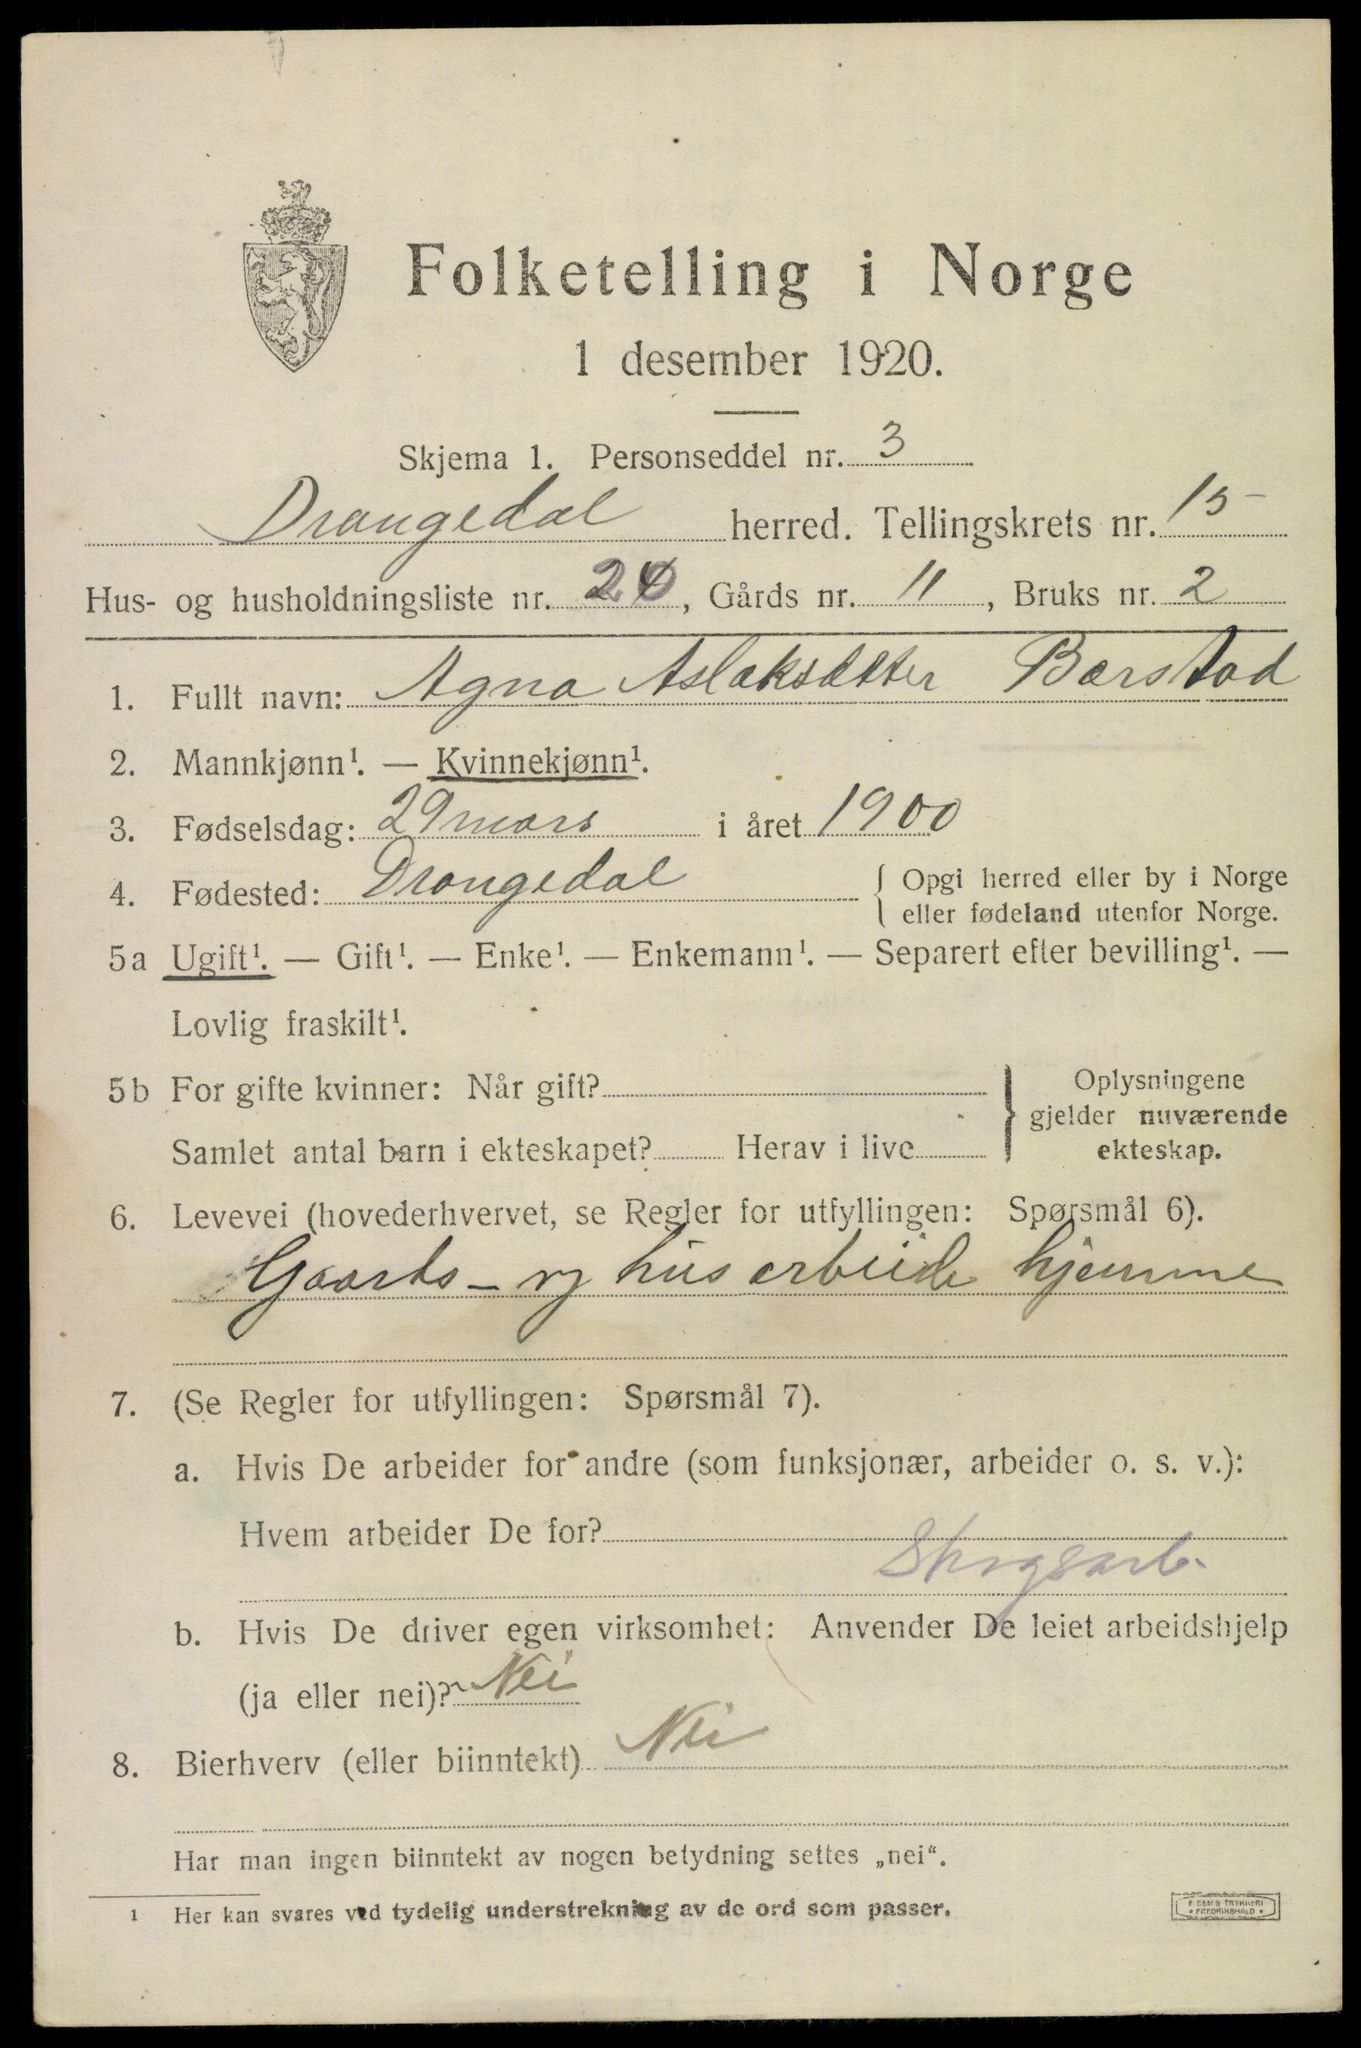 Folketelling i Norge
1 desember 1920.
Skjema 1. Personseddel nr. 3
Drangedal herred. Tellingskrets nr. 15
Hus- og husholdningsliste nr. 20, Gårds nr. 11, Bruks nr. 2
1. Fullt navn: Agna Aslaksdatter Bærstad
2. Mannkjønn¹. — Kvinnekjønn¹.
3. Fødselsdag: 29 mars i året 1900
4. Fødested: Drangedal { Opgi herred eller by i Norge
eller fødeland utenfor Norge.
5a Ugift¹. — Gift¹. — Enke¹. — Enkemann¹. — Separert efter bevilling¹. —
Lovlig fraskilt¹.
5b For gifte kvinner: Når gift? } Oplysningene
gjelder nuværende
Samlet antal barn i ekteskapet? Herav i live ekteskap.
6. Levevei (hovederhvervet, se Regler for utfyllingen: Spørsmål 6).
Gaards- og husarbeide hjemme
7. (Se Regler for utfyllingen: Spørsmål 7).
a. Hvis De arbeider for andre (som funksjonær, arbeider o. s. v.):
Hvem arbeider De for?
Skogsarb.
b. Hvis De driver egen virksomhet: Anvender De leiet arbeidshjelp
(ja eller nei)? Nei
8. Bierhverv (eller biinntekt) Nei
Har man ingen biinntekt av nogen betydning settes „nei“.
¹ Her kan svares ved tydelig understrekning av de ord som passer.